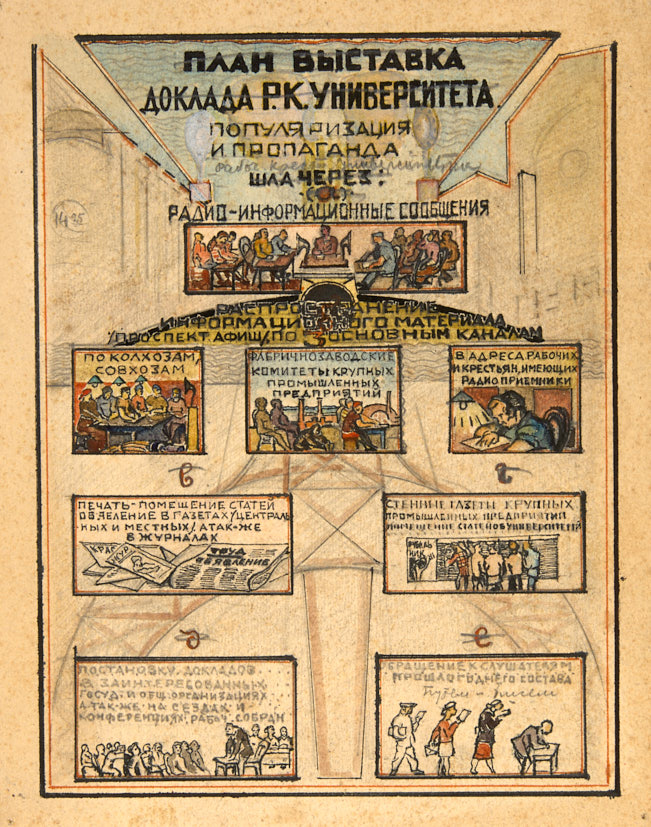 ПЛАН ВЫСТАВКА
ДОКЛАДА Р.К. УНИВЕРСИТЕТА.
ПОПУЛЯРИЗАЦИЯ
И ПРОПАГАНДА
ШЛА ЧЕРЕЗ:
РАДИО-ИНФОРМАЦИОННЫЕ СООБЩЕНИЯ
1435
РАСПРОСТРАНЕНИЕ
ИНФОРМАЦИОННОГО МАТЕРИАЛА
/ПРОСПЕКТ АФИШ/ ПО ОСНОВНЫМ КАНАЛАМ
ПО КОЛХОЗАМ,
СОВХОЗАМ
ФАБРИЧНОЗАВОДСКИЕ
КОМИТЕТЫ КРУПНЫХ
ПРОМЫШЛЕННЫХ
ПРЕДПРИЯТИЙ
В АДРЕСА РАБОЧИХ
И КРЕСТЬЯН, ИМЕЮЩИХ
РАДИО ПРИЕМНИКИ
в
г
ПЕЧАТЬ-ПОМЕЩЕНИЕ СТАТЕЙ
ОБ'ЯВЛЕНИЕ В ГАЗЕТАХ /ЦЕНТРАЛЬ
НЫХ И МЕСТНЫХ/ А ТАК-ЖЕ
В ЖУРНАЛАХ
КРАС
ЖУР
ТРУД
ОБ'ЯВЛЕНИЕ
СТЕННЫЕ ГАЗЕТЫ КРУПНЫХ
ПРОМЫШЛЕННЫХ ПРЕДПРИЯТИЙ
ПОМЕЩЕНИЕ СТАТЕЙ ОБ УНИВЕРСИТЕТЕЙ
д
е
ПОСТАНОВКУ ДОКЛАДОВ
В ЗАИНТЕРЕСОВАННЫХ
ГОСУД. И ОБЩ. ОРГАНИЗАЦИЯХ
А ТАК-ЖЕ НА С'ЕЗДАХ И
КОНФЕРЕНЦИЯХ, РАБОЧ. СОБРАН
ОБРАЩЕНИЕ К СЛУШАТЕЛЯМ
ПРОШЛОГОДНЕГО СОСТАВА
Путем